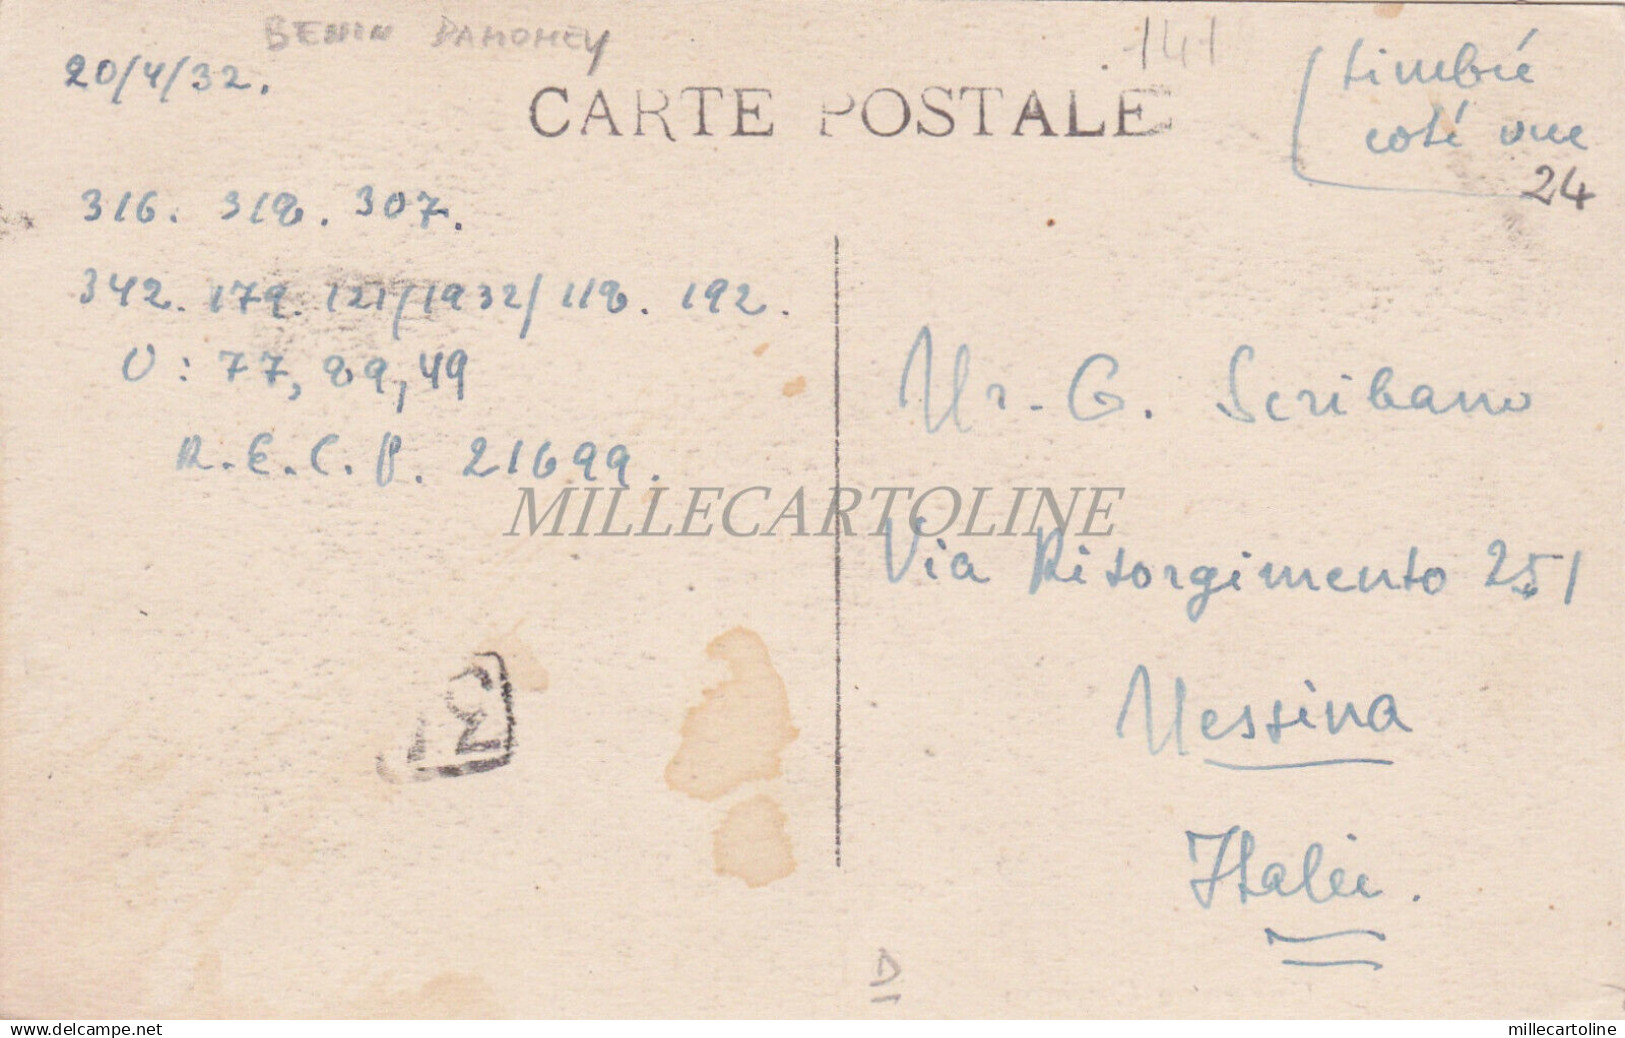 BENIN DAHOMEY
141
20/4/32.
CARTE POSTALE
timbré
coté vue
24
316. 318. 307.
342. 179. 121/1932/118. 192.
O: 77, 89, 49
R.E.C.P. 21699.
MILLECARTOLINE
Mr. G. Scribano
Via Risorgimento 251
Messina
Italie.
D
www.delcampe.net
millecartoline